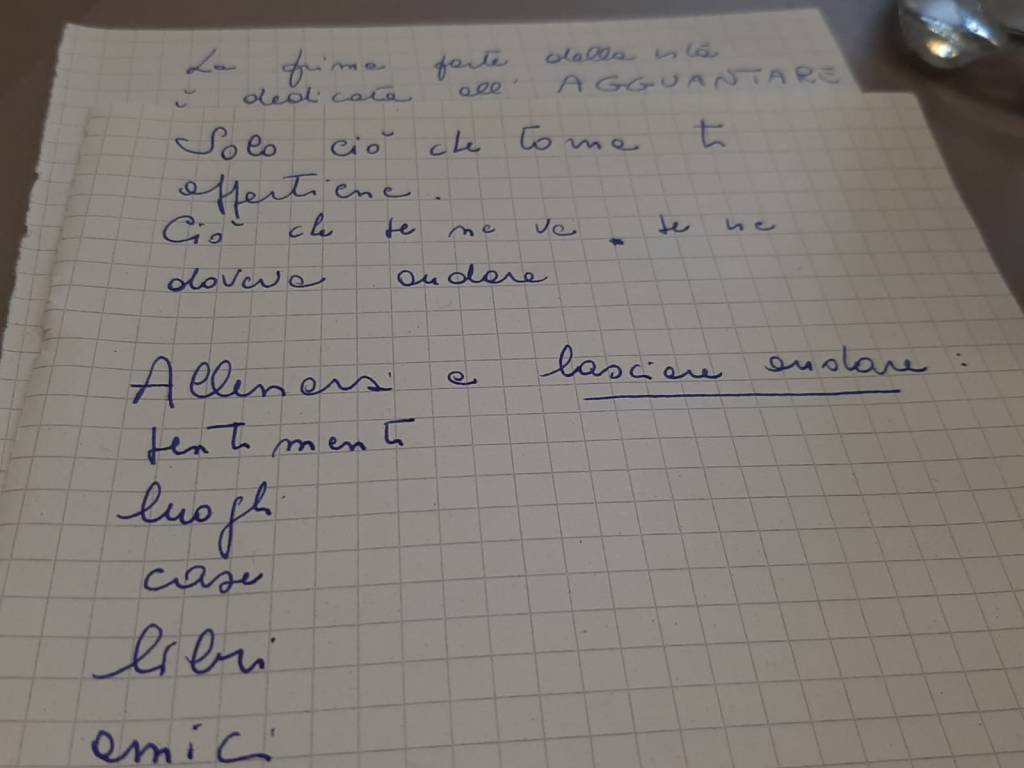 La prima parte della vita
è dedicata all' AGGUANTARE
Solo ciò che torna ti
appartiene.
Ciò che se ne va . se ne
doveva andare
Allenarsi a lasciare andare :
sentimenti
luoghi
case
libri
amici